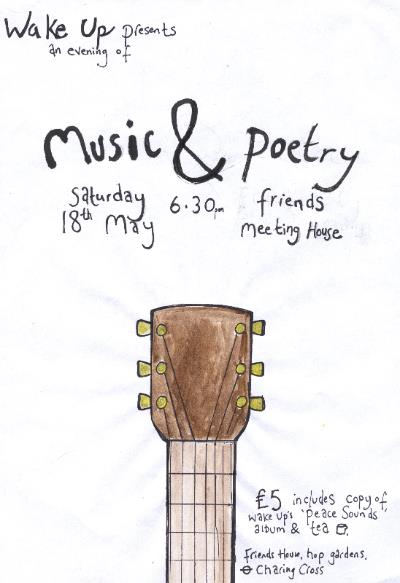 Wake Up presents
an evening of
Music & Poetry
Saturday 18th May
6.30pm
friends Meeting House
£5 includes copy of
Wake Up's 'Peace Sounds'
album & tea
Friends House, hop gardens,
Charing Cross